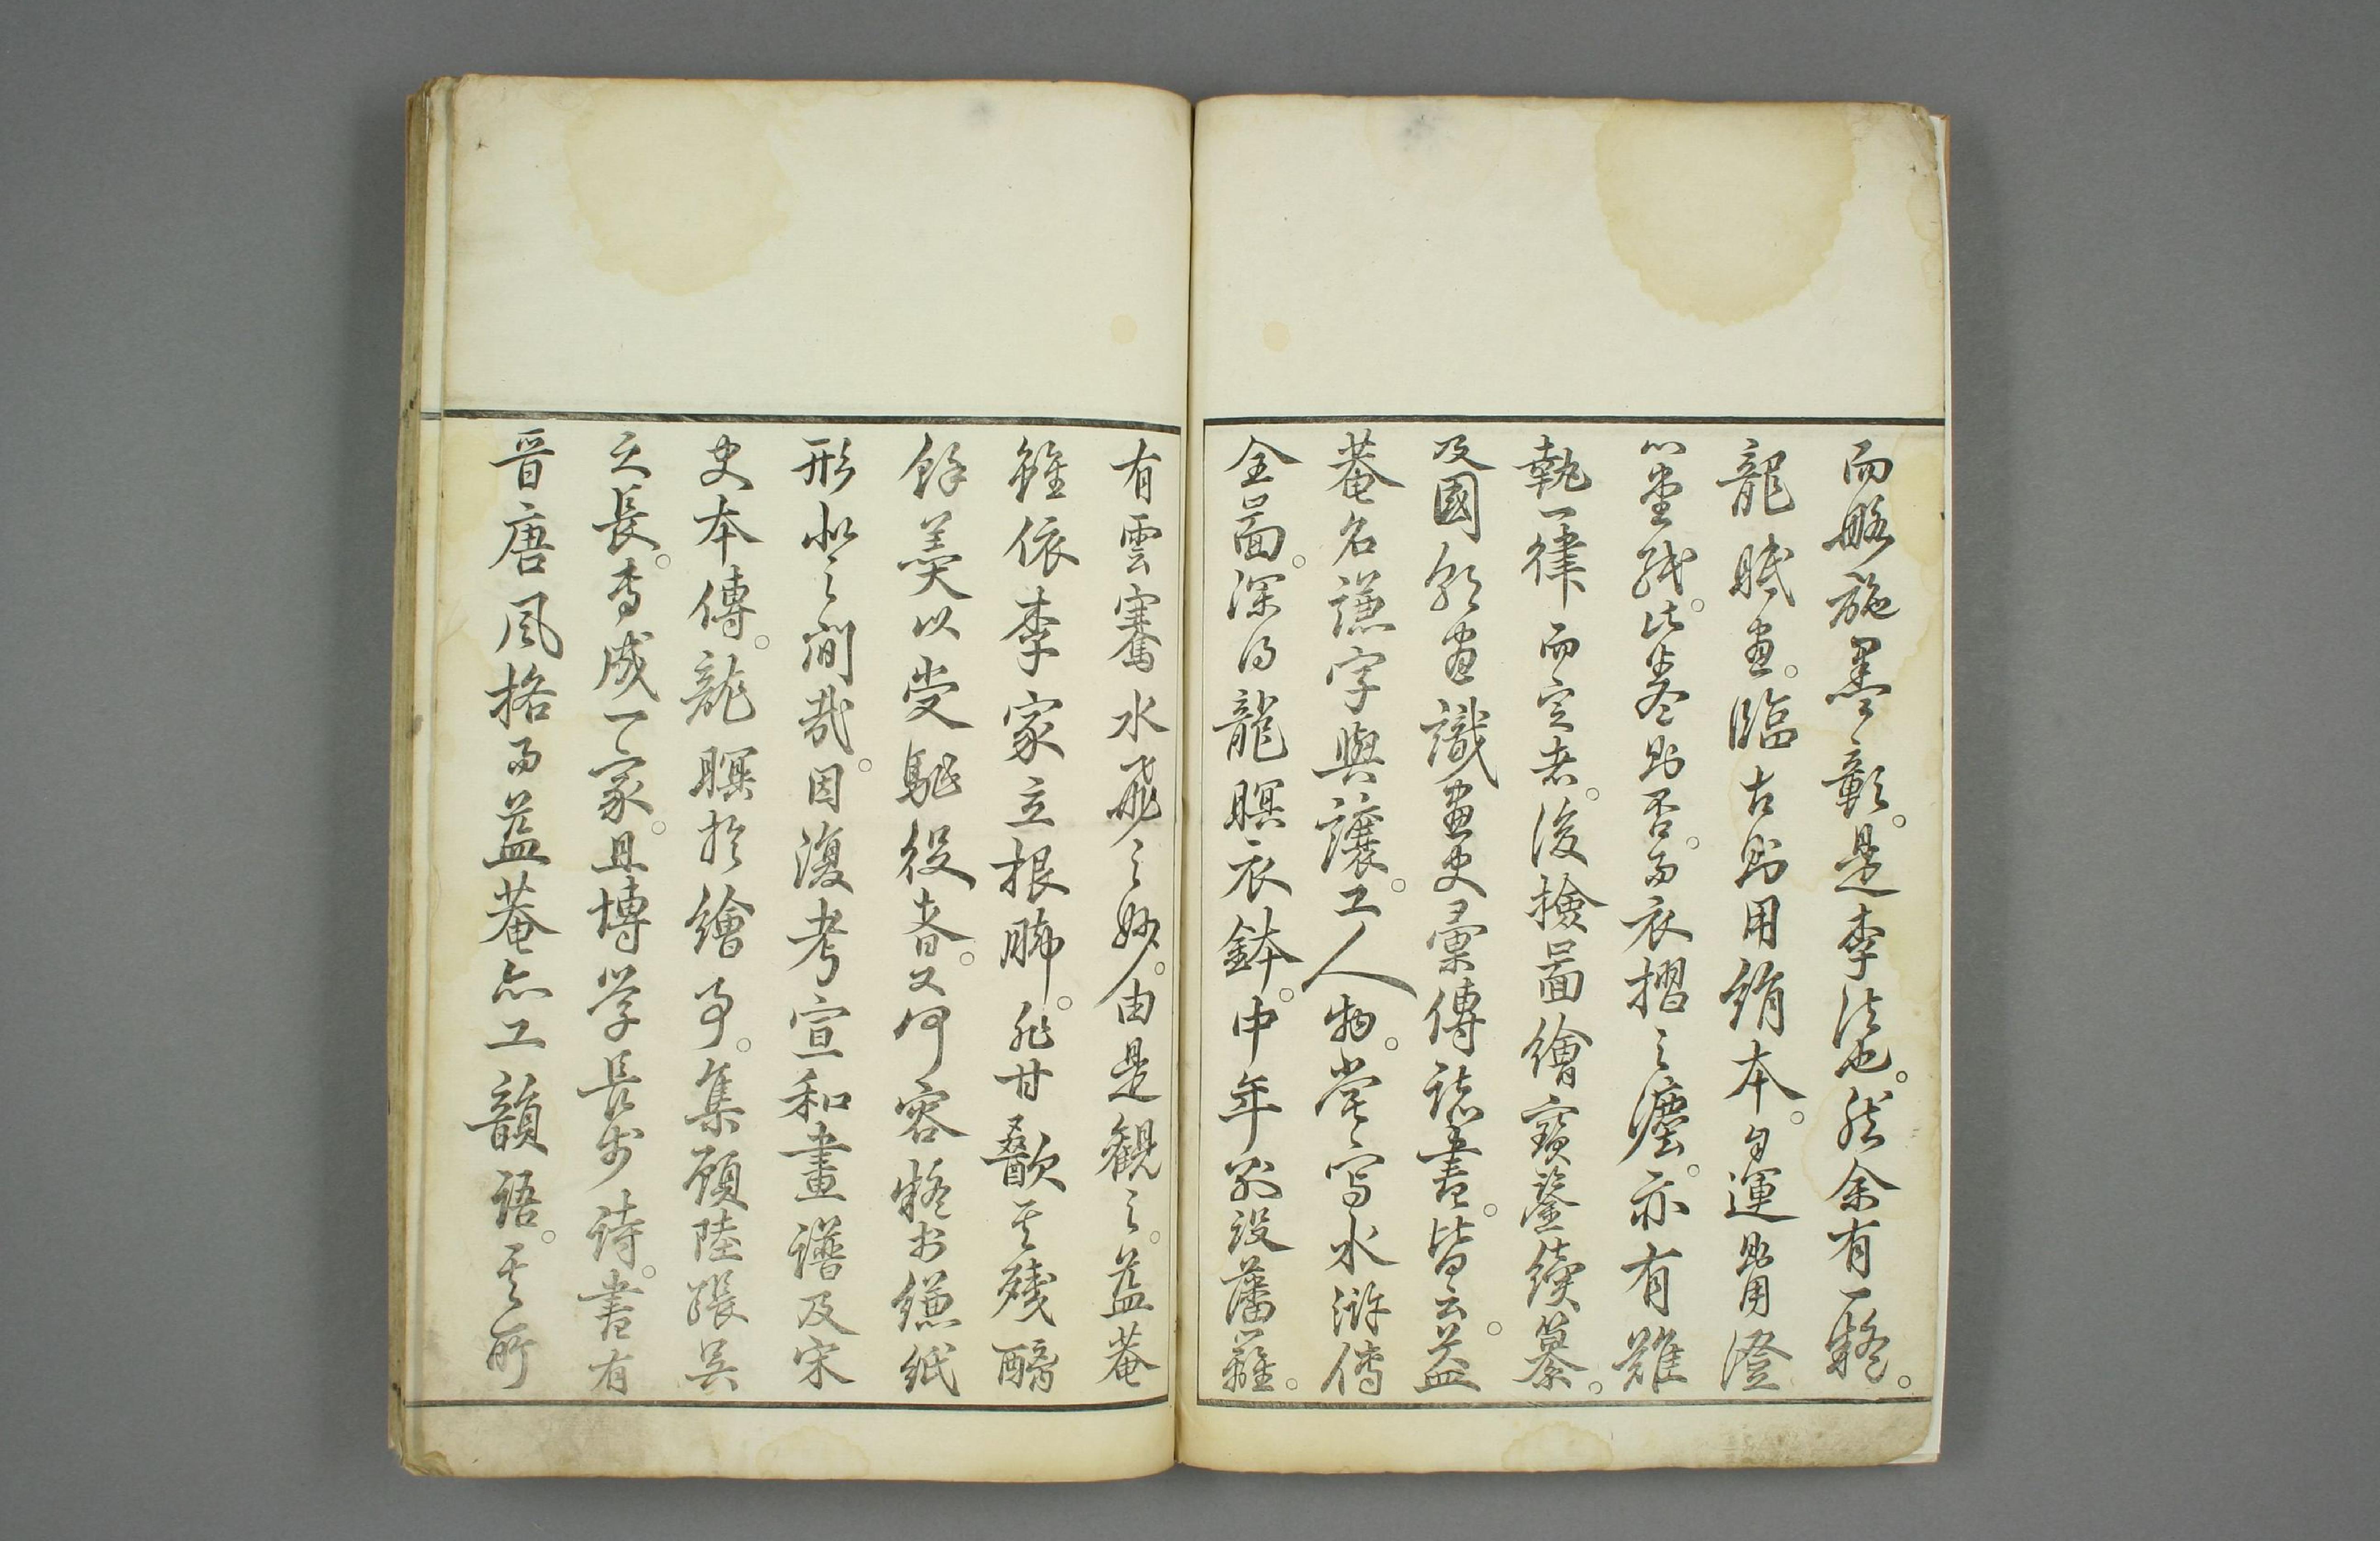 而略施墨彰。是李法也。然余有一疑。
龍眠畫。臨古則用絹本。自運時用澄
心堂紙。此卷則否。而衣摺之瀍。亦有難
執一律而定者。後撿圖繪寶鑒續纂。
及國朝畫識畫史彙傳諸書。皆云。益
菴名謙字與讓。工人物。嘗寫水滸傳
全圖。深得龍眠衣鉢。中年別設藩籬。
有雲騫水飛之妙。由是觀之。益菴
雖依李家立根腳。非甘歠其殘醨
餘羹以受驅役者。又何容疑於縑紙
形似之間哉。因復考宣和畫譜及宋
史本傳。龍眠於繪事。集顧陸張吳
之長。專成一家。且博學長於詩。書有
晉唐風格而益菴亦工韻語。其所